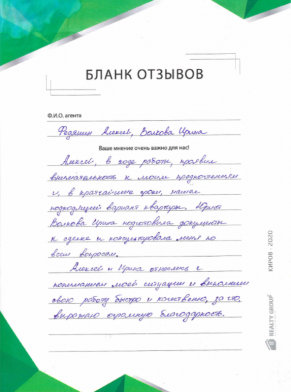 БЛАНК ОТЗЫВОВ
Ф.И.О. агента
Алексей, Волкова Ирина
Ваше мнение очень важно для нас!
Алексей, в ходе работы, проявил
внимательность к моим предпочтениям
и, в кратчайшие сроки, нашел
подходящий вариант квартиры. Юрист
Волкова Ирина подготовила документы
к сделке и консультировала меня по
всем вопросам.
Алексей и Ирина отнеслись с
пониманием к моей ситуации и выполнили
свою работу быстро и качественно, за что
выражаю огромную благодарность.
REALTY GROUP
КИРОВ 2020